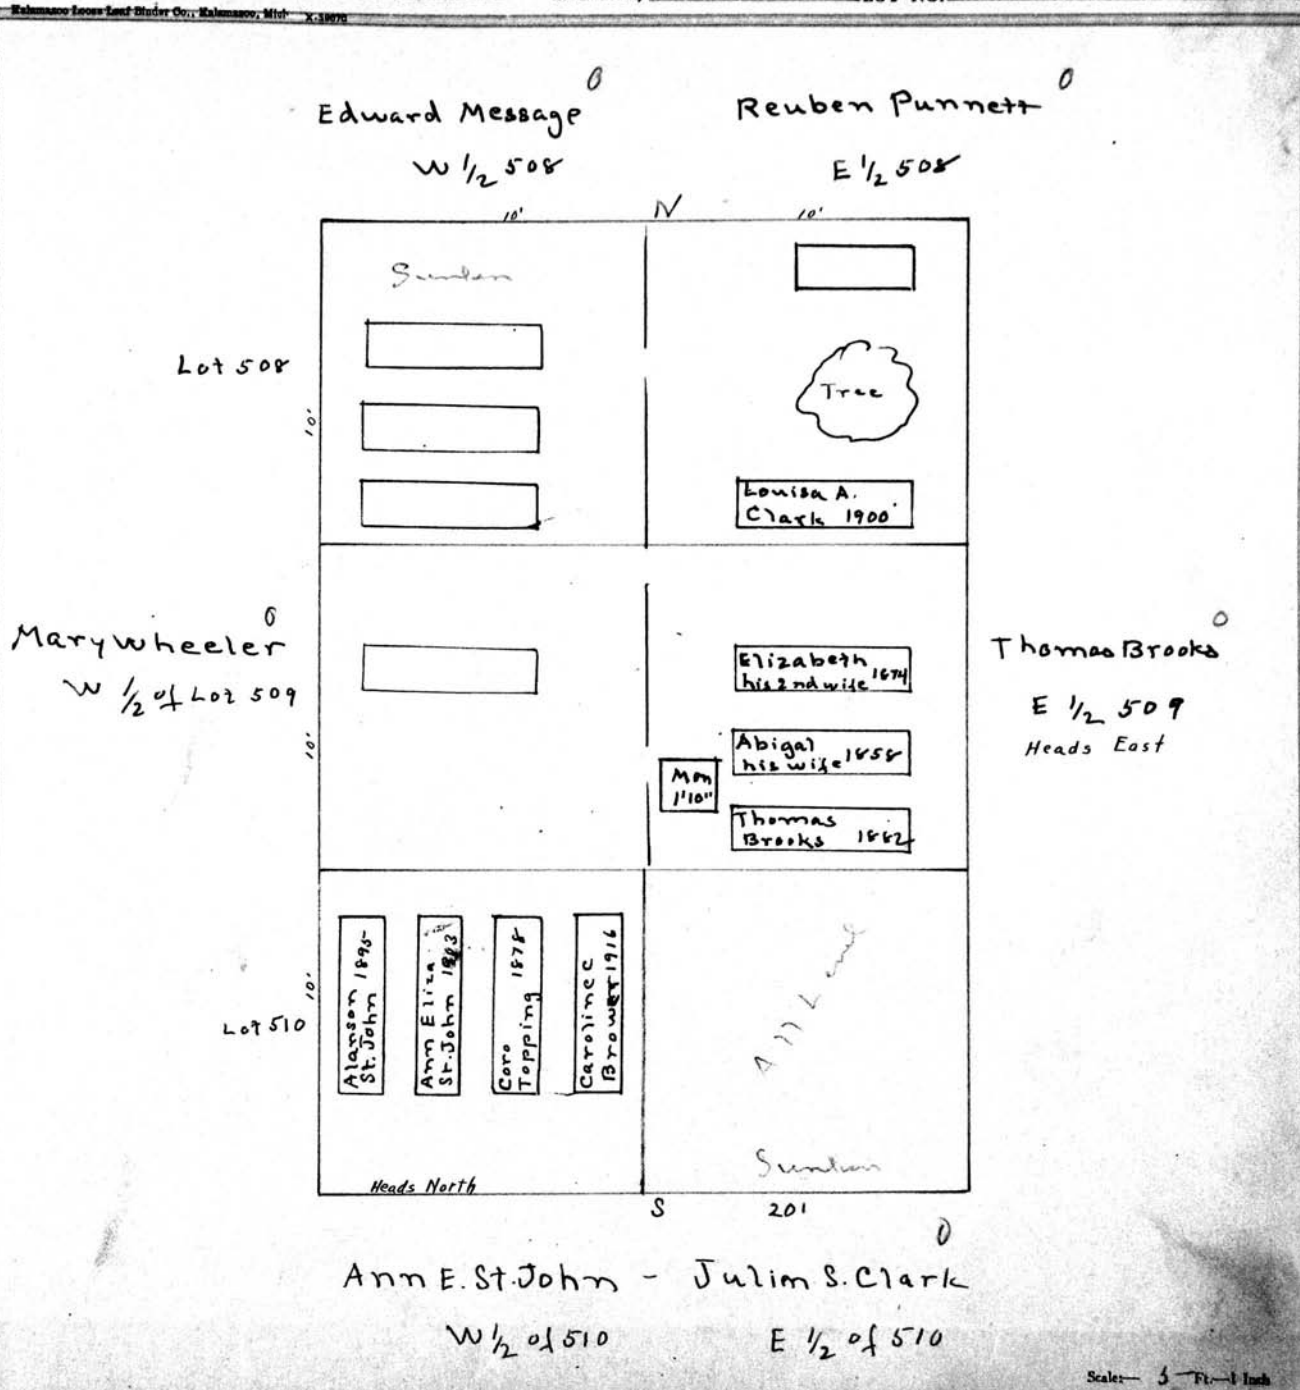 Kalamazoo Loose Leaf Binder Co., Kalamazoo, Mich X-59070
Edward Message
W 1/2 508
Reuben Punnett
E 1/2 508
10'
N
10'
Sunken
Lot 508
10'
Tree
Louisa A.
Clark 1900
Mary Wheeler
W 1/2 of Lot 509
10'
Elizabeth
his 2nd wife 1874
Abigal
his wife 1858
Mon
1'10"
Thomas
Brooks 1882
Thomas Brooks
E 1/2 509
Heads East
Lot 510
10'
Alanson
St. John 1895
Ann Eliza
St. John
Coro
Topping 1878
Caroline C
Brower 1916
Sunken
Heads North
S
201
Ann E. St. John - Julim S. Clark
W 1/2 of 510
E 1/2 of 510
Scale:— 5 Ft.—1 Inch